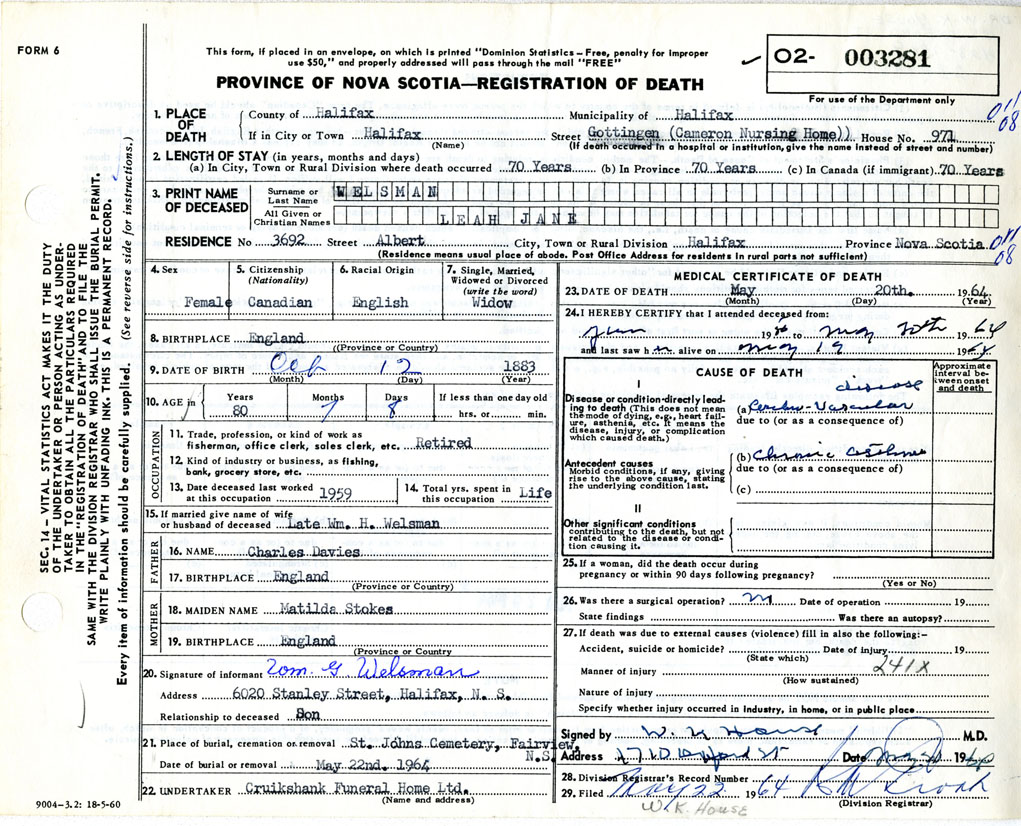 FORM 6
This form, if placed in an envelope, on which is printed "Dominion Statistics – Free, penalty for improper
use $50," and properly addressed will pass through the mail "FREE"
PROVINCE OF NOVA SCOTIA—REGISTRATION OF DEATH
O2- 003281
For use of the Department only
SEC. 14 – VITAL STATISTICS ACT MAKES IT THE DUTY
OF THE UNDERTAKER OR PERSON ACTING AS UNDER-
TAKER TO OBTAIN ALL THE PARTICULARS REQUIRED
IN THE "REGISTRATION OF DEATH" AND TO FILE THE
SAME WITH THE DIVISION REGISTRAR WHO SHALL ISSUE THE BURIAL PERMIT.
WRITE PLAINLY WITH UNFADING INK. THIS IS A PERMANENT RECORD.
Every item of information should be carefully supplied. (See reverse side for instructions.)
1. PLACE OF DEATH
County of Halifax Municipality of Halifax
If in City or Town Halifax Street Gottingen (Cameron Nursing Home)) House No. 971
(Name) (If death occurred in a hospital or institution, give the name instead of street and number)
011
08
2. LENGTH OF STAY (in years, months and days)
(a) In City, Town or Rural Division where death occurred 70 Years (b) In Province 70 Years (c) In Canada (if immigrant) 70 Years
3. PRINT NAME OF DECEASED
Surname or Last Name WELSMAN
All Given or Christian Names LEAH JANE
RESIDENCE No 3692 Street Albert City, Town or Rural Division Halifax Province Nova Scotia
(Residence means usual place of abode. Post Office Address for residents in rural parts not sufficient)
011
08
4. Sex
Female
5. Citizenship
(Nationality)
Canadian
6. Racial Origin
English
7. Single, Married,
Widowed or Divorced
(write the word)
Widow
8. BIRTHPLACE England
((Province or Country)
9. DATE OF BIRTH Oct 12 1883
(Month) (Day) (Year)
10. AGE in Years 80 Months 7 Days 8 If less than one day old
hrs. or min.
OCCUPATION
11. Trade, profession, or kind of work as
fisherman, office clerk, sales clerk, etc. Retired
12. Kind of industry or business, as fishing,
bank, grocery store, etc.
13. Date deceased last worked
at this occupation 1959
14. Total yrs. spent in
this occupation Life
15. If married give name of wife
or husband of deceased Late Wm. H. Welsman
FATHER
16. NAME Charles Davies
17. BIRTHPLACE England
(Province or Country)
MOTHER
18. MAIDEN NAME Matilda Stokes
19. BIRTHPLACE England
(Province or Country)
20. Signature of informant Wm. G Welsman
Address 6020 Stanley Street, Halifax, N. S.
Relationship to deceased Son
21. Place of burial, cremation or removal St. Johns Cemetery, Fairview,
N.S.
Date of burial or removal May 22nd. 1964
22. UNDERTAKER Cruikshank Funeral Home Ltd.
(Name and address)
9004-3.2: 18-5-60
MEDICAL CERTIFICATE OF DEATH
23. DATE OF DEATH May 20th. 1964
(Month) (Day) (Year)
24. I HEREBY CERTIFY that I attended deceased from:
Jan 19 to May 20th 1964
and last saw h alive on May 19 1964
CAUSE OF DEATH
Approximate
interval be-
tween onset
and death
I
Disease or condition-directly lead-
ing to death (This does not mean
the mode of dying, e.g., heart fail-
ure, asthenia, etc. It means the
disease, injury, or complication
which caused death.)
disease
(a) Cerebro-Vascular
due to (or as a consequence of)
Antecedent causes
Morbid conditions, if any, giving
rise to the above cause, stating
the underlying condition last.
(b) Chronic Asthma
due to (or as a consequence of)
(c)
II
Other significant conditions
contributing to the death, but not
related to the disease or condi-
tion causing it.
25. If a woman, did the death occur during
pregnancy or within 90 days following pregnancy?
(Yes or No)
26. Was there a surgical operation? Date of operation 19
State findings Was there an autopsy?
27. If death was due to external causes (violence) fill in also the following:–
Accident, suicide or homicide? Date of injury 19
(State which)
Manner of injury 241X
(How sustained)
Nature of injury
Specify whether injury occurred in Industry, in home, or in public place
Signed by W. K House M.D.
Address Date May 19
28. Division Registrar's Record Number
29. Filed May 22 1964
(Division Registrar)
W.K. HOUSE